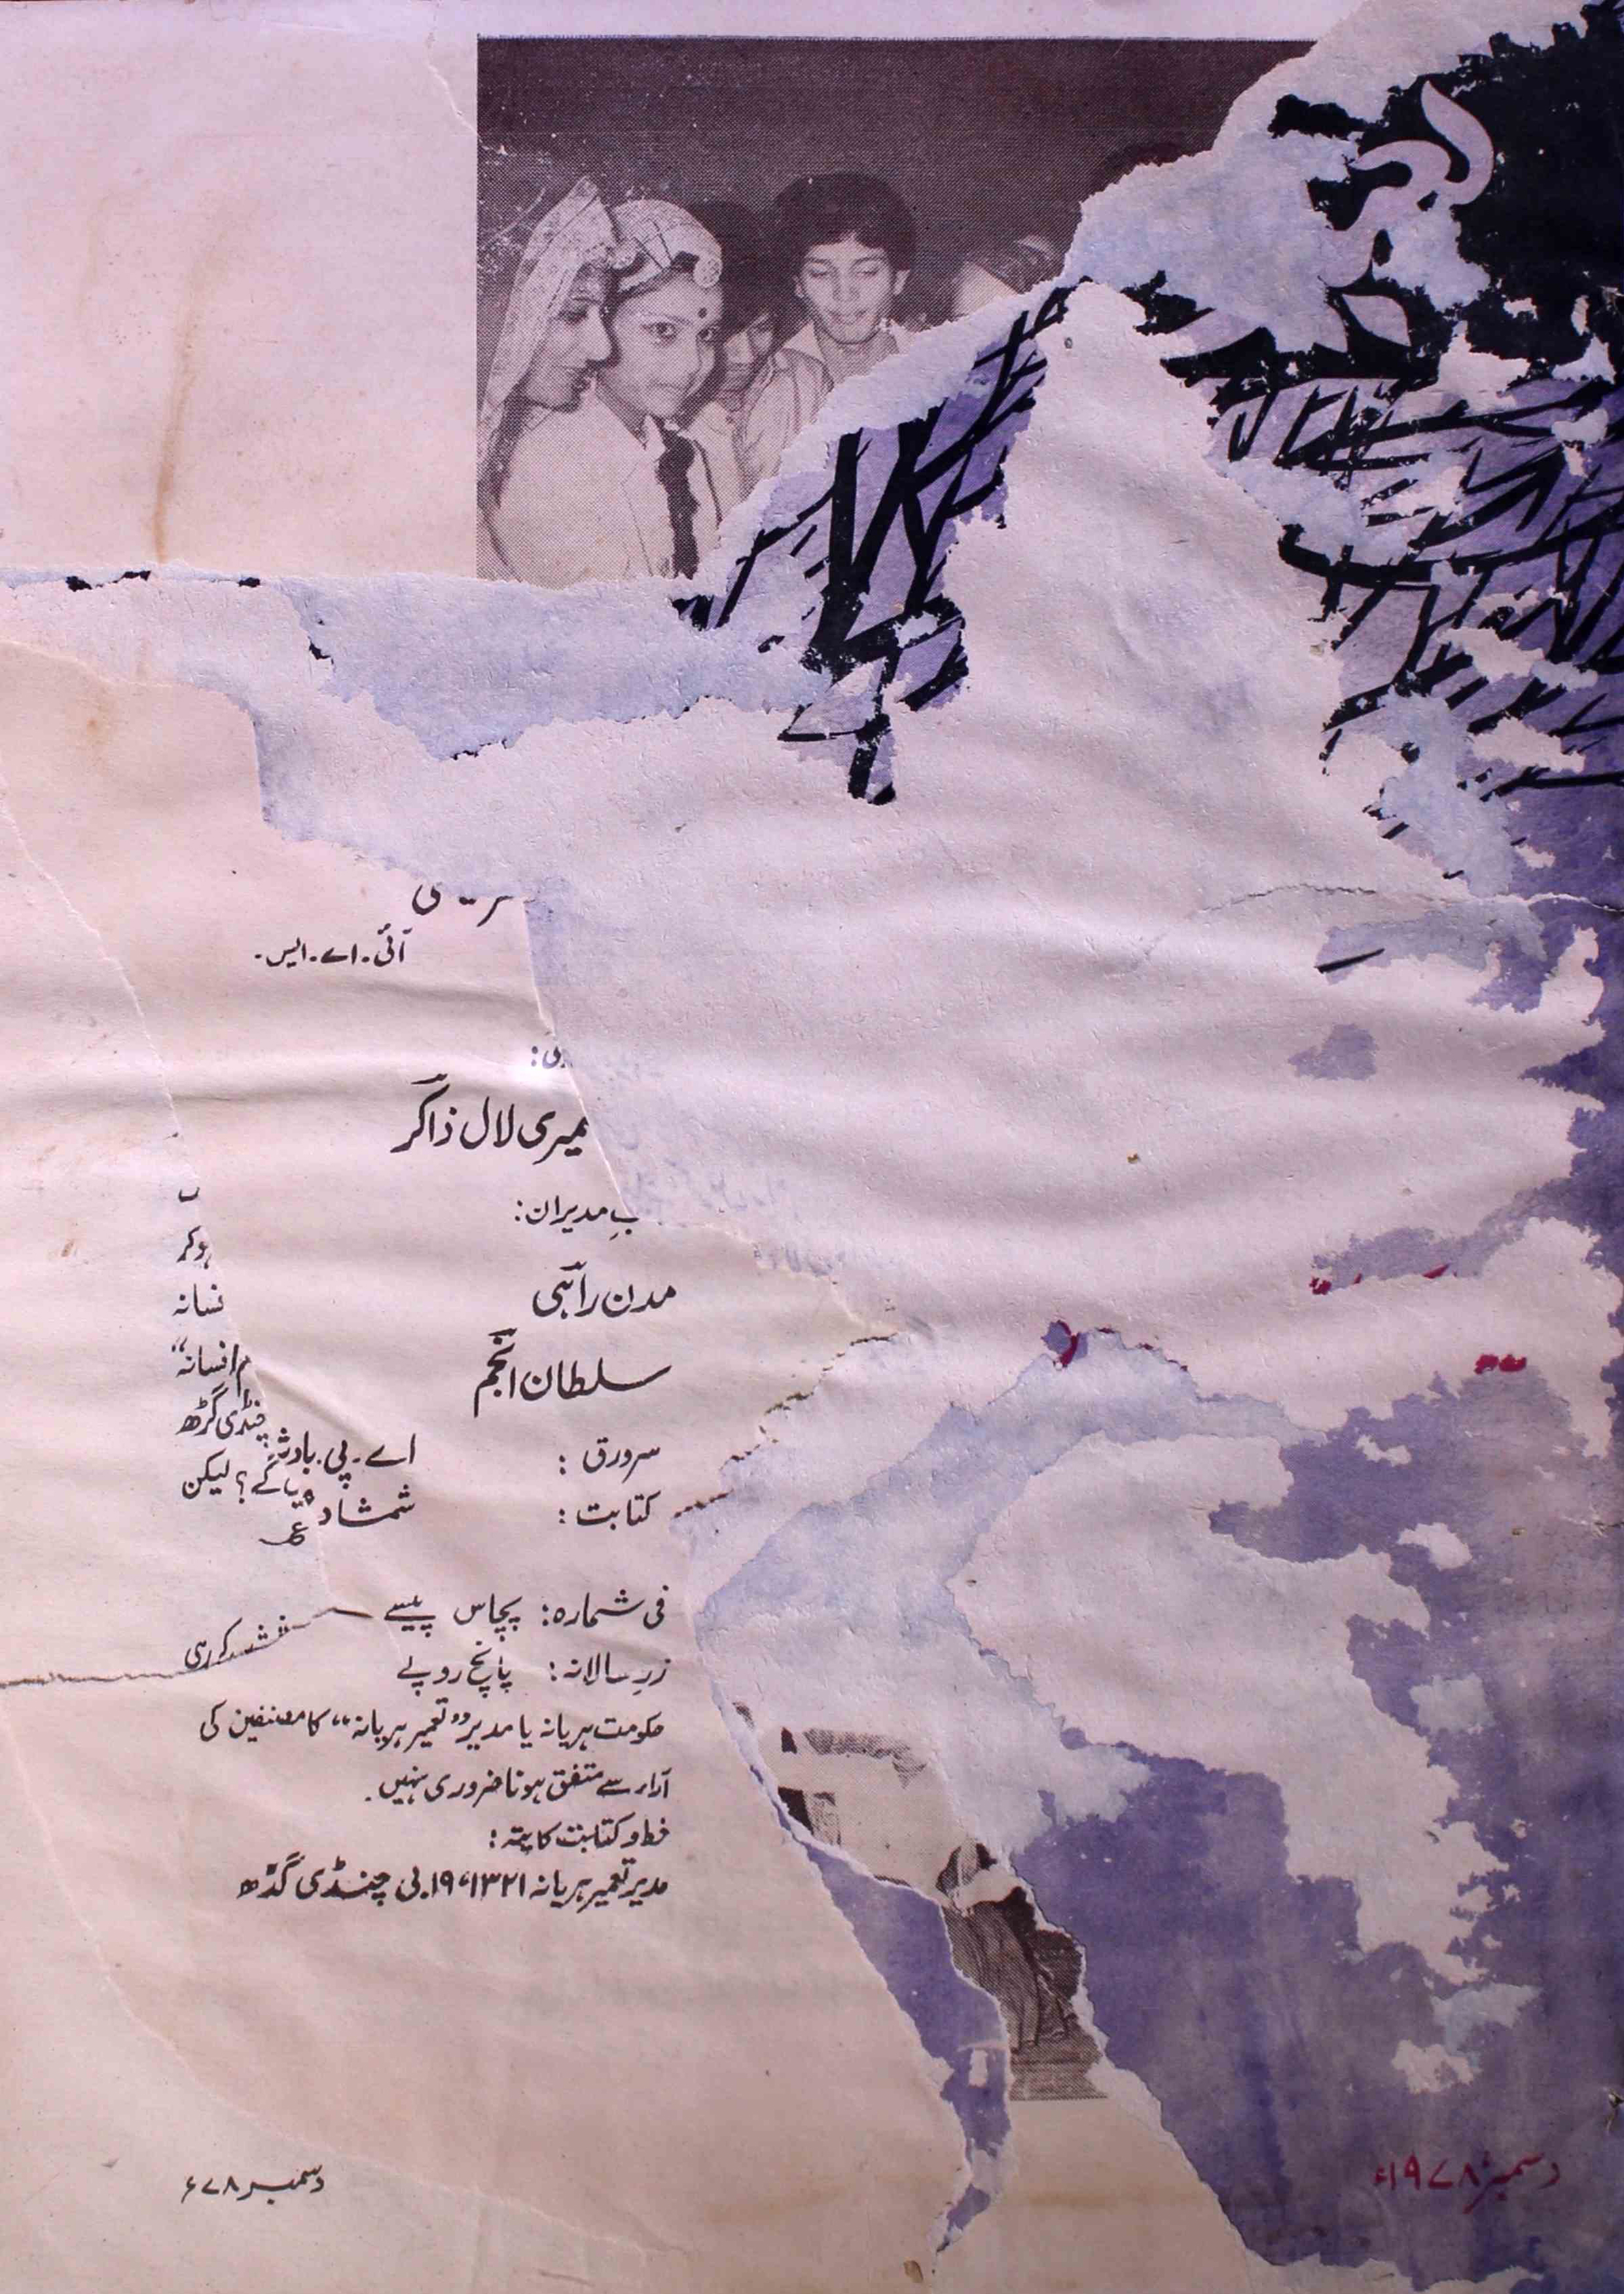 آئی۔اے۔ایس۔
میری لال ذاکر
مدیران:
مدن راہی
سلطان انجم
سرورق :
اے۔پی۔
کتابت :
شمشاد
فی شمارہ: پچاس پیسے
زرِ سالانہ: پانچ روپے
حکومت ہریانہ یا مدیر ”تعمیر ہریانہ“ کا مصنفین کی
آراء سے متفق ہونا ضروری نہیں۔
خط و کتابت کا پتہ:
مدیر تعمیر ہریانہ ۱۳۲۱، ۱۹۔بی چنڈی گڑھ
ہوکر
افسانہ“
لیکن
کر رہی
دسمبر ۷۸ء
دسمبر ۱۹۷۸ء